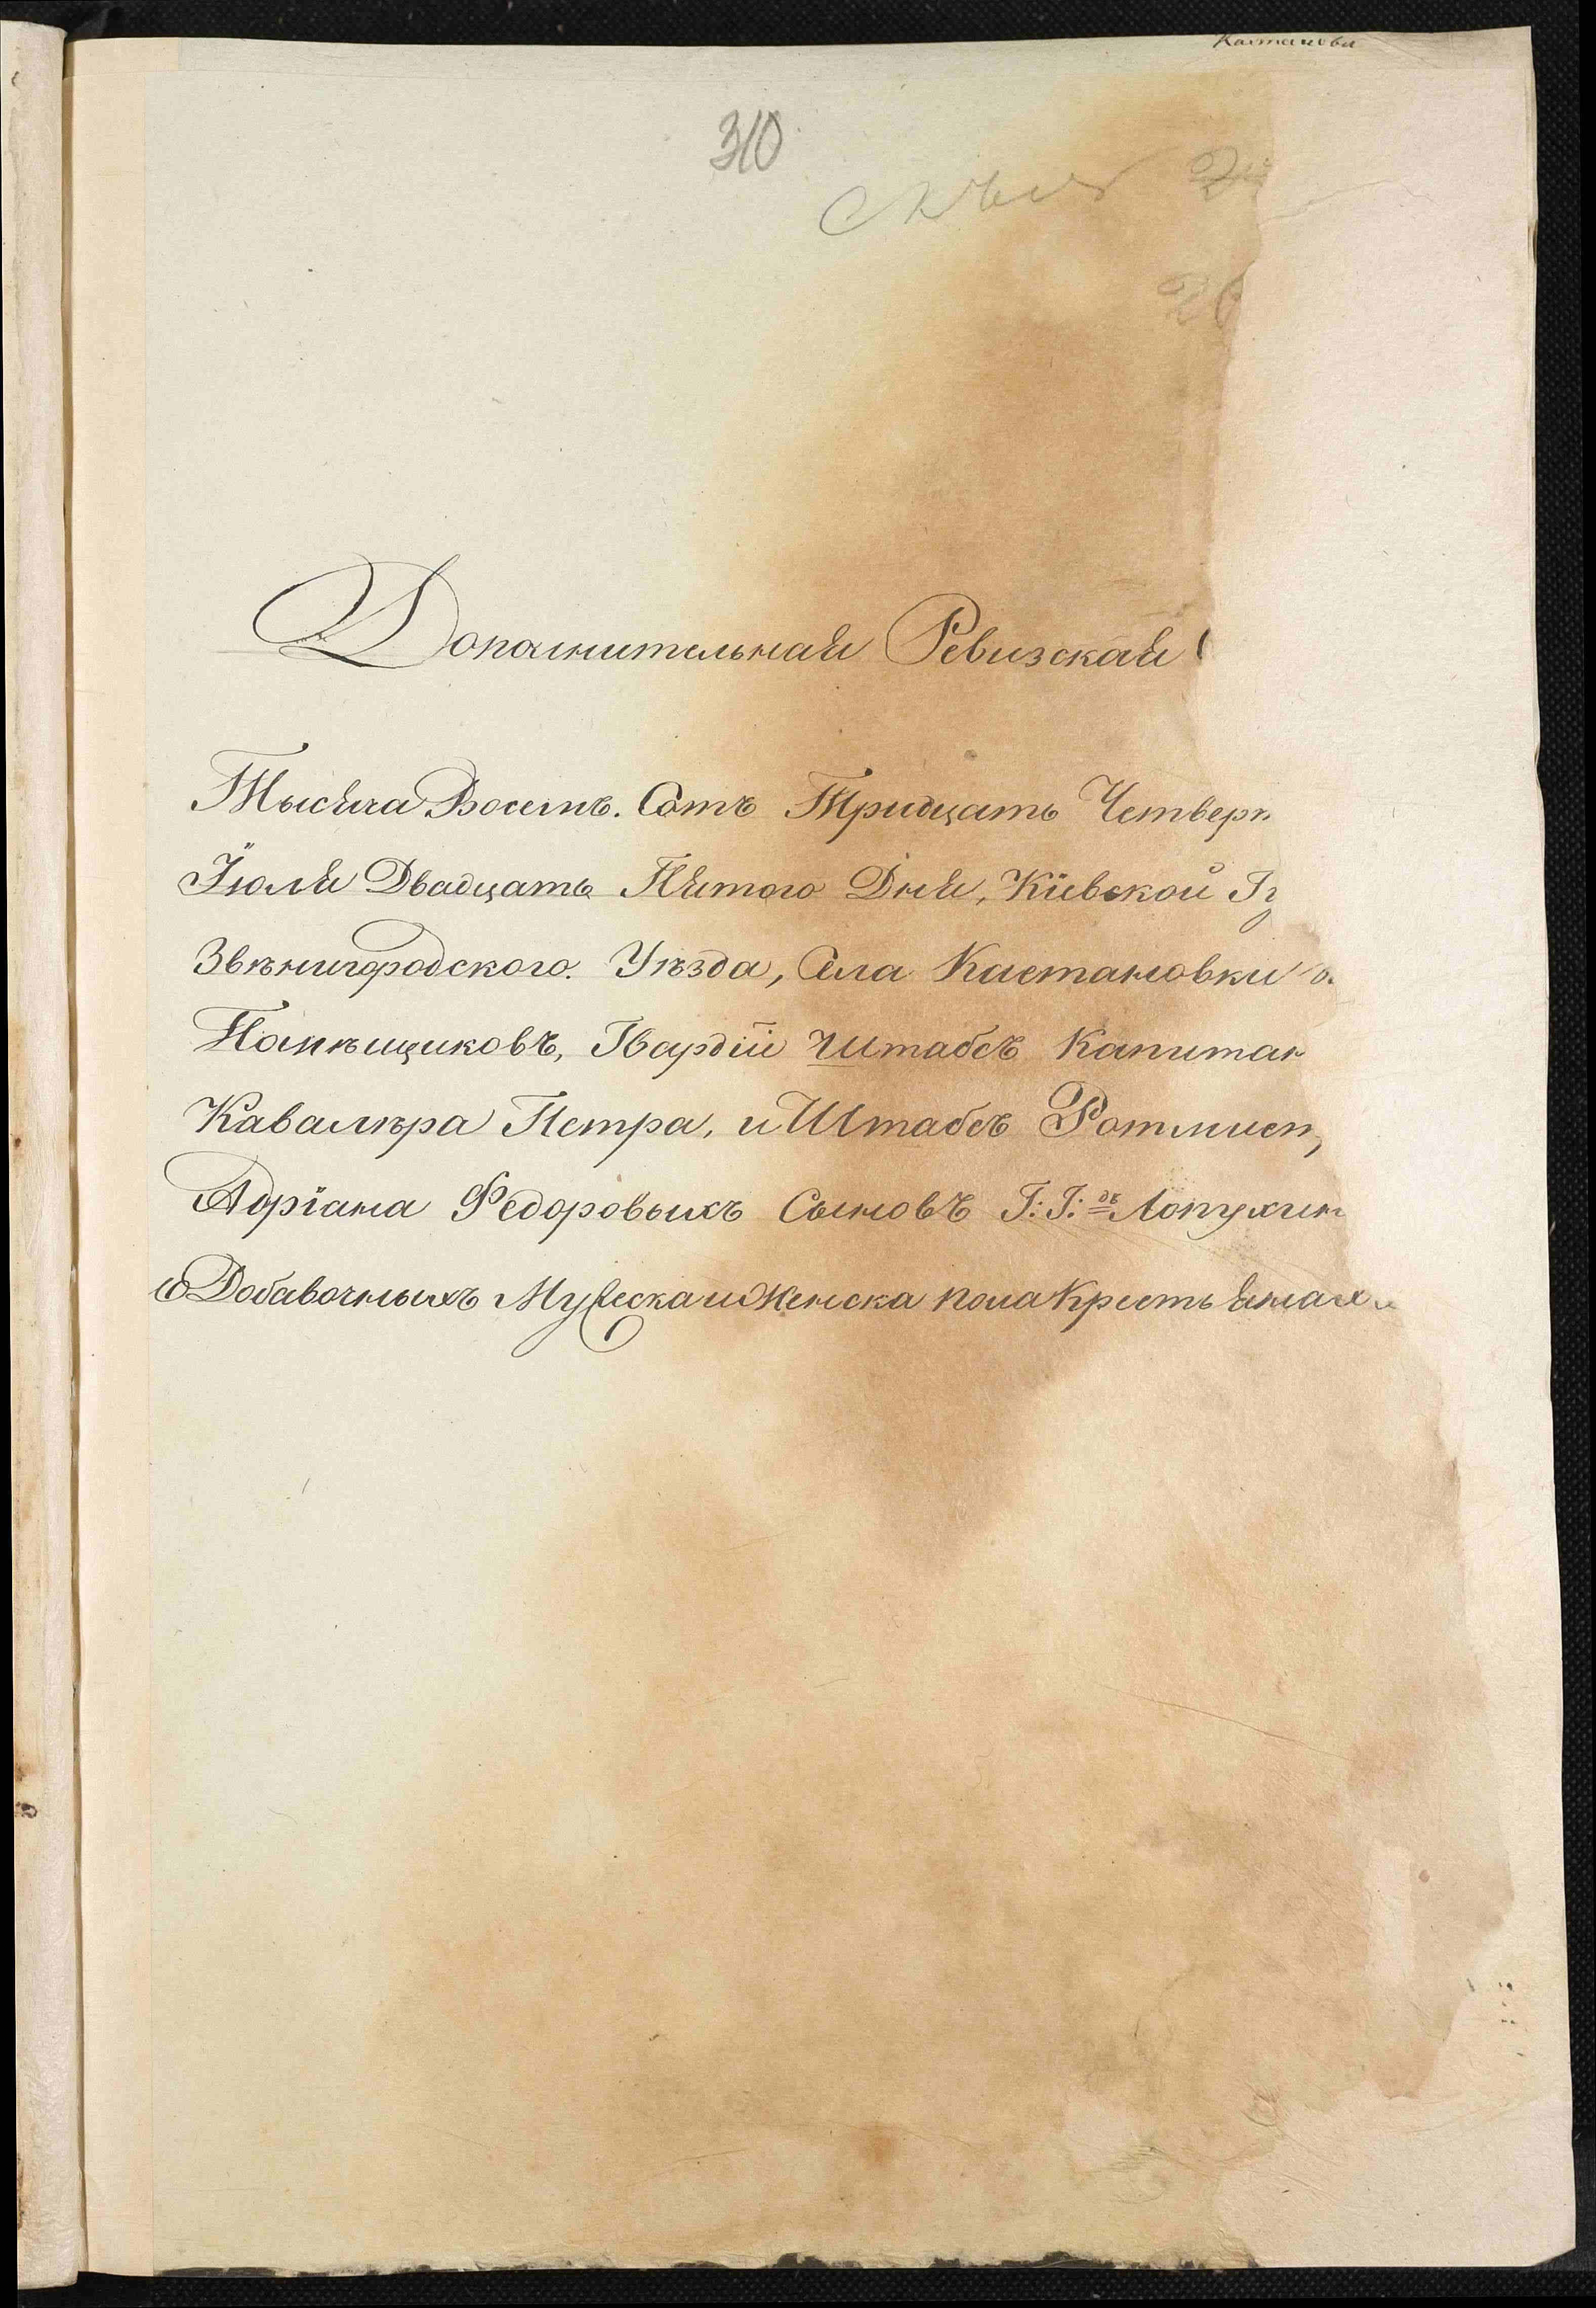 310
Дополнительная Ревизская
Тысяча Восемь. Сотъ Тридцать Четверт
Іюля Двадцать Пятого Дня, Кіевской Гу
Звѣнигородского. Уѣзда, Села Кастановки
Помѣщиковъ, Гвардіи Штабсъ Капитан
Кавалѣра Петра, и Штабсъ Ротмист
Адріана Федоровыхъ Сыновъ Г: Г: дъ Лопухин
о Добавочныхъ Мужеска и Женска пола Крестьянах